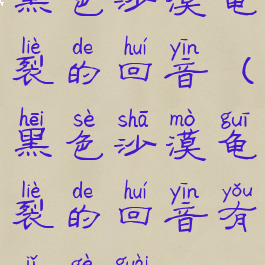 黑色沙漠龟
liè de huí yīn
裂的回音（
hēi sè shā mò guī
黑色沙漠龟
liè de huí yīn yǒu
裂的回音有
jǐ gè guài